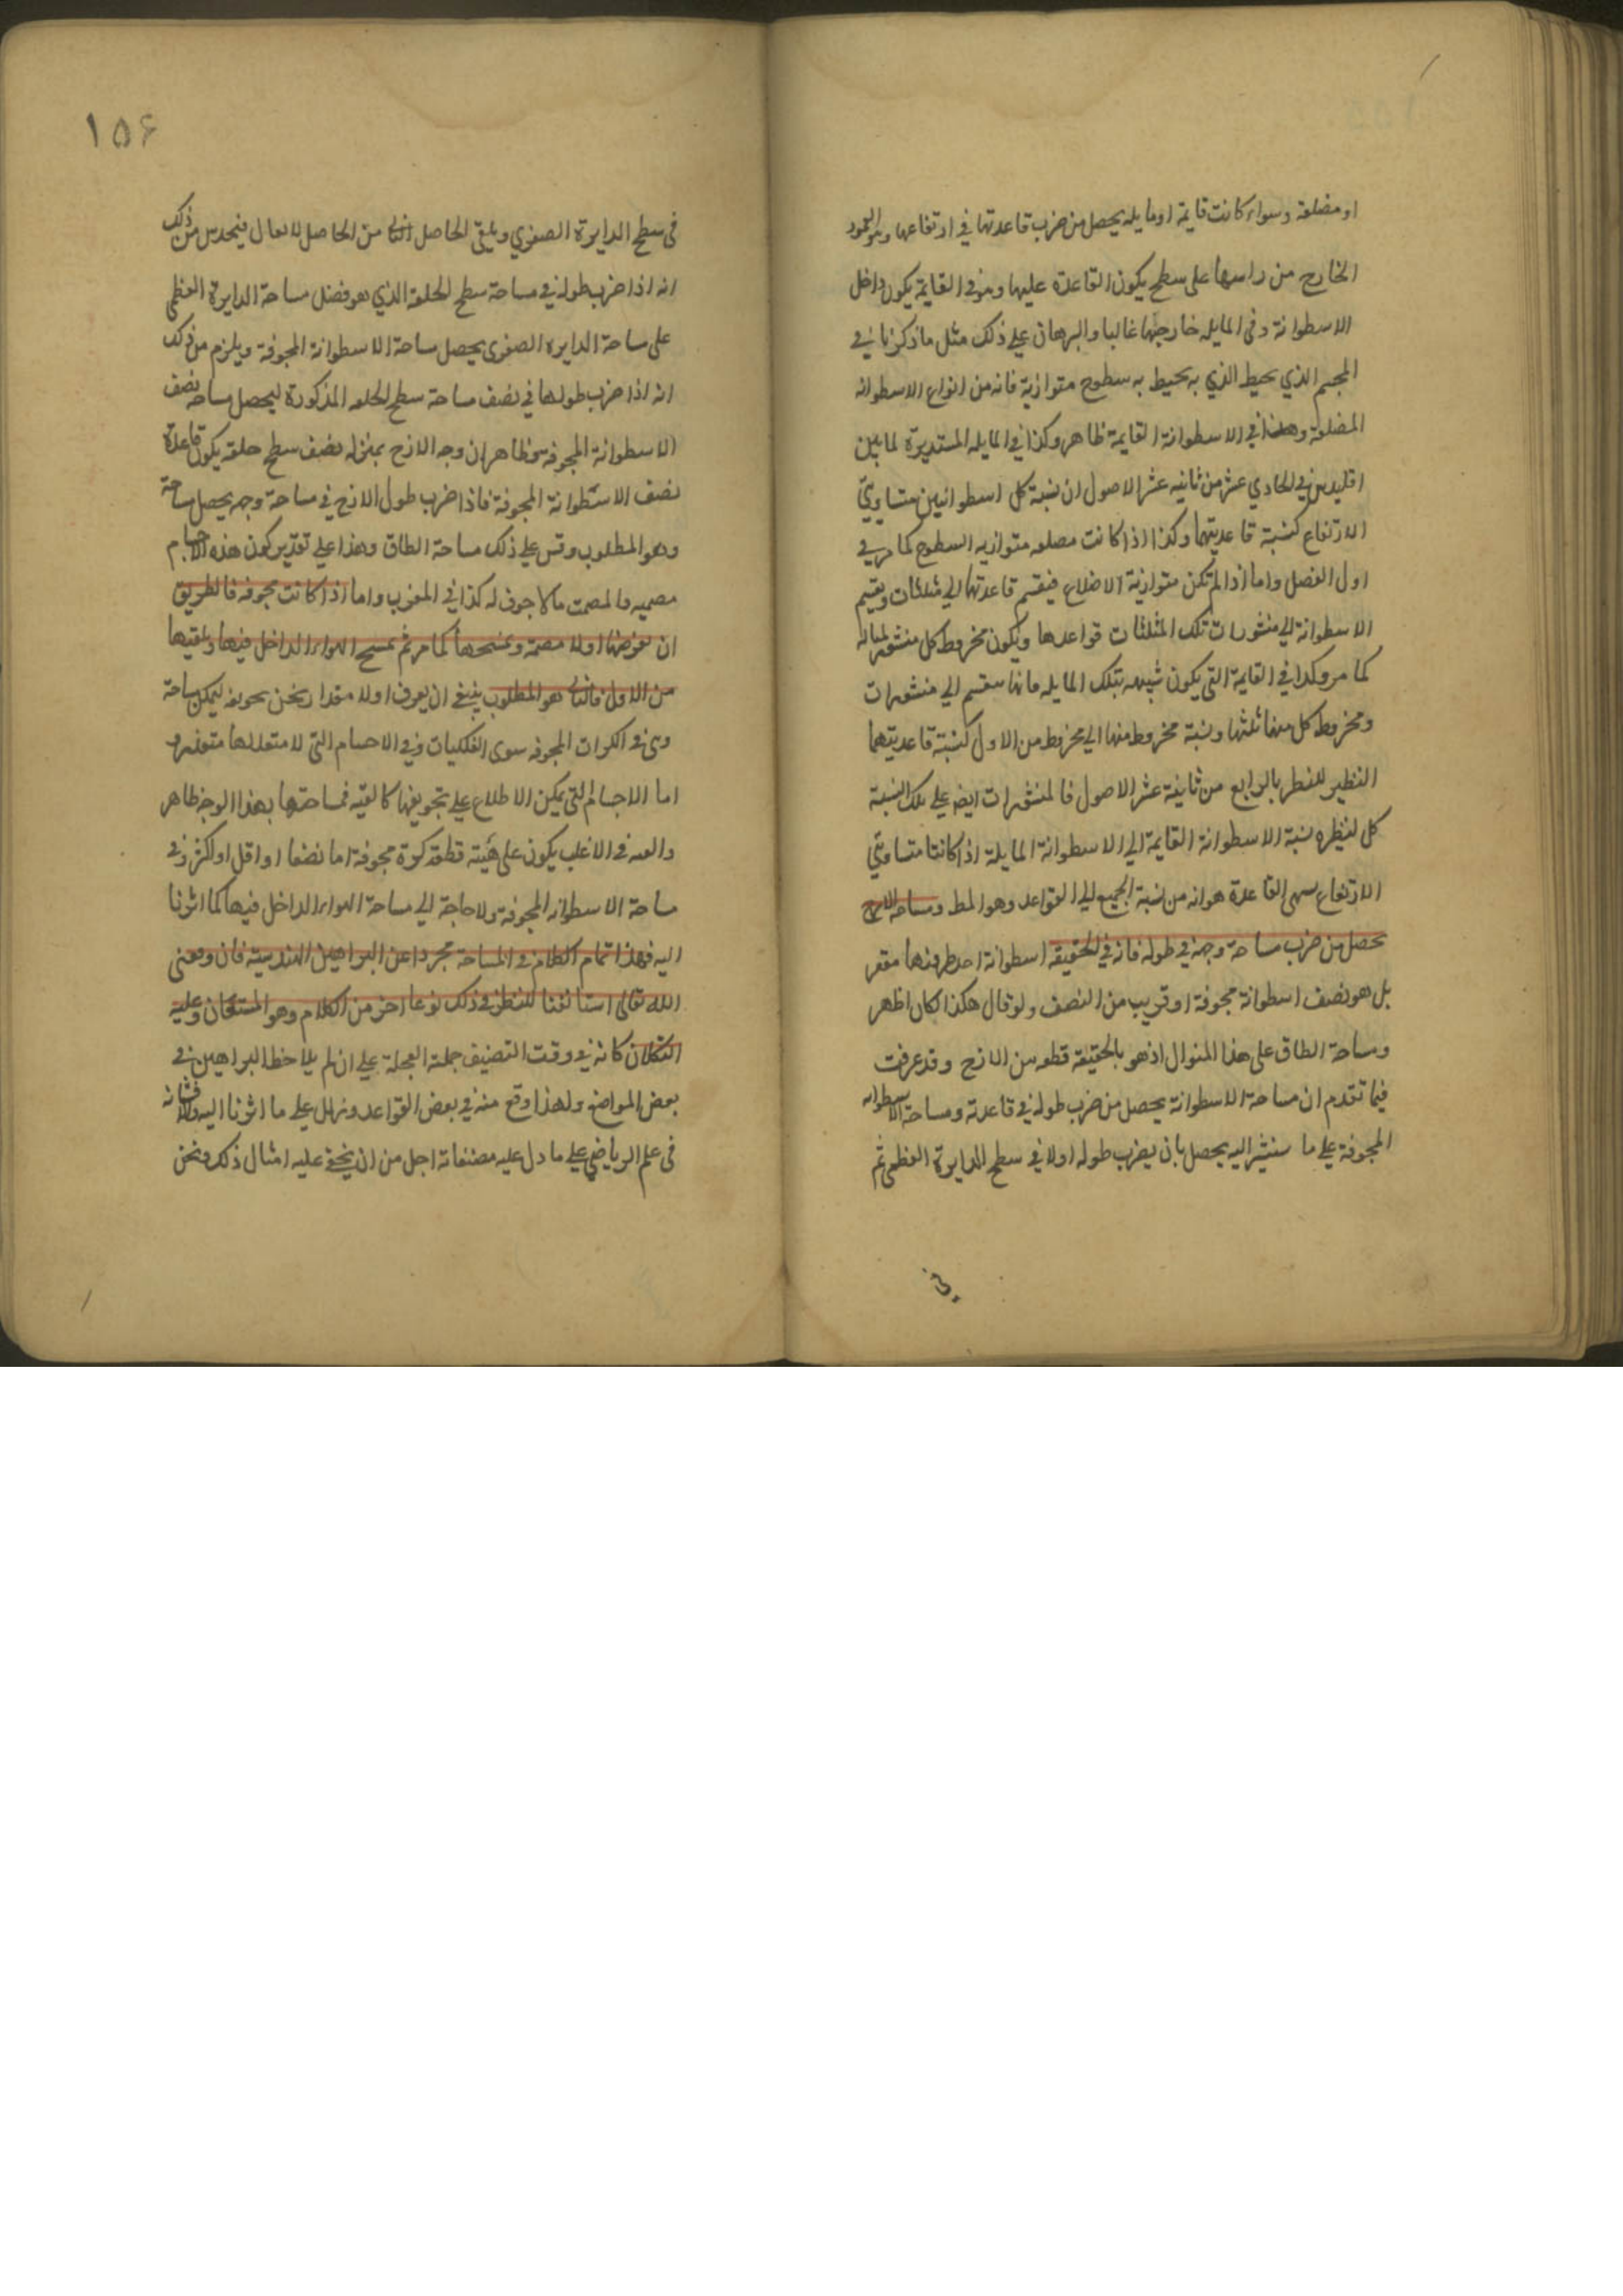 او مضلعة وسواء كانت قايمة او مايله يحصل من ضرب قاعدتها في ارتفاعها وهو العمود
الخارج من راسها على سطح يكون القاعدة عليها وهو في القايمة يكون داخل
الاسطوانة وفي المايله خارجها غالبا والبرهان علي ذلك مثل ما ذكرنا في
المجسم الذي يحيط به سطوح متوازية فانه من انواع الاسطوانه
المضلعة وهذا في الاسطوانة القايمة ظاهر وكذا في المايله المستديرة لما بين
اقليدس في الحادي عشر من ثانيه عشر الاصول ان نسبة كل اسطوانتين متساويتي
الارتفاع كنسبة قاعدتيهما وكذا اذا كانت مضلعه متوازيه السطوح كما مر في
اول الفصل واما اذا لم تكن متوازية الاضلاع فيقسم قاعدتها الي مثلثات ويقسم
الاسطوانة الي منشورات تلك المثلثات قواعدها ويكون مخروط كل منشور
كما مر وكذا في القايمة التي يكون شبيهه بتلك المايله فانها سقسم الي منشورات
ومخروط كل منها ثلثها ونسبة مخروط منها الي مخروط من الاول كنسبة قاعدتيهما
النظير للنظير بالرابع من ثانية عشر الاصول فالمنشورات ايضا علي تلك النسبة
كل لنظيره نسبة الاسطوانة القايمة الي الاسطوانة المايلة اذا كانتا متساويتي
الارتفاع القاعدة هوانه من نسبة الجميع الي القواعد وهو المط ومساحه الازج
يحصل من ضرب مساحة وجهه في طوله فانه في الحقيقه اسطوانة احد طرفيها مقعر
بل هو نصف اسطوانة مجوفة او قريب من النصف ولو قال هكذا لكان اظهر
ومساحة الطاق على هذا المنوال اذ هو بالحقيقة قطعه من الازج وقد عرفت
فيما تقدم ان مساحة الاسطوانة يحصل من ضرب طوله في قاعدته ومساحة الاسطوانه
المجوفة علي ما سنشير اليه يحصل بان يضرب طوله اولا في سطح الدايرة العظمي ثم
في
١٥٦
في سطح الدايرة الصغري ويلقي الحاصل الثاني من الحاصل الاول فيحدس من ذلك
انه اذا ضرب طوله في مساحة سطح الحلقة الذي هو فضل مساحة الدايرة العظمي
على مساحة الدايره الصغرى يحصل مساحة الاسطوانة المجوفة ويلزم من ذلك
انه اذا ضرب طولها في نصف مساحة سطح الحلقه المذكورة ليحصل مساحه نصف
الاسطوانة المجوفه وظاهر ان وجه الازج بمنزله نصف سطح حلقه يكون قاعدة
نصف الاسطوانة المجوفة فاذا ضرب طول الازج في مساحة وجهه يحصل مساحة
وهو المطلوب وقس علي ذلك مساحة الطاق وهذا علي تقدير كون هذه الاجسام
مصمته والمصمت ما لا جوف له كذا في المغرب واما اذا كانت مجوفه فالطريق
ان نفرضها اولا مصمتة ونمسحها كما مر ثم نمسح الهواء الداخل فيها ونلقيها
من الاول فالباقي هو المطلوب ينبغي ان يعرف اولا مقدار ثخن تجويفه ليمكن مساحة
في الكرات المجوفه سوى الفلكيات وفي الاجسام التي لا متعذر و
اما الاجسام التي يمكن الاطلاع علي تجويفها كالقبه فمساحتها بهذا الوجه ظاهر
والقبه في الاغلب يكون على هيئة قطعة كرة مجوفة اما نصفا او اقل او اكثر وفي
مساحة الاسطوانه المجوفة ولا حاجة الي مساحة الهواء الداخل فيها كما اشرنا
اليه فهذا تمام الكلام في المساحة مجردا عن البراهين الهندسية فان وفقني
الله تعالى استانفنا للنظر في ذلك نوعا اخر من الكلام وهو المستعان وعليه
التكلان كانه في وقت التصنيف جملة العجلة علي ان لم يلاحظ البراهين في
بعض المواضع ولهذا وقع منه في بعض القواعد وزلل علي ما اشرنا اليه والا فشانه
في علم الرياضي علي ما دل عليه مصنفاته اجل من ان يخفي عليه امثال ذلك ونحن